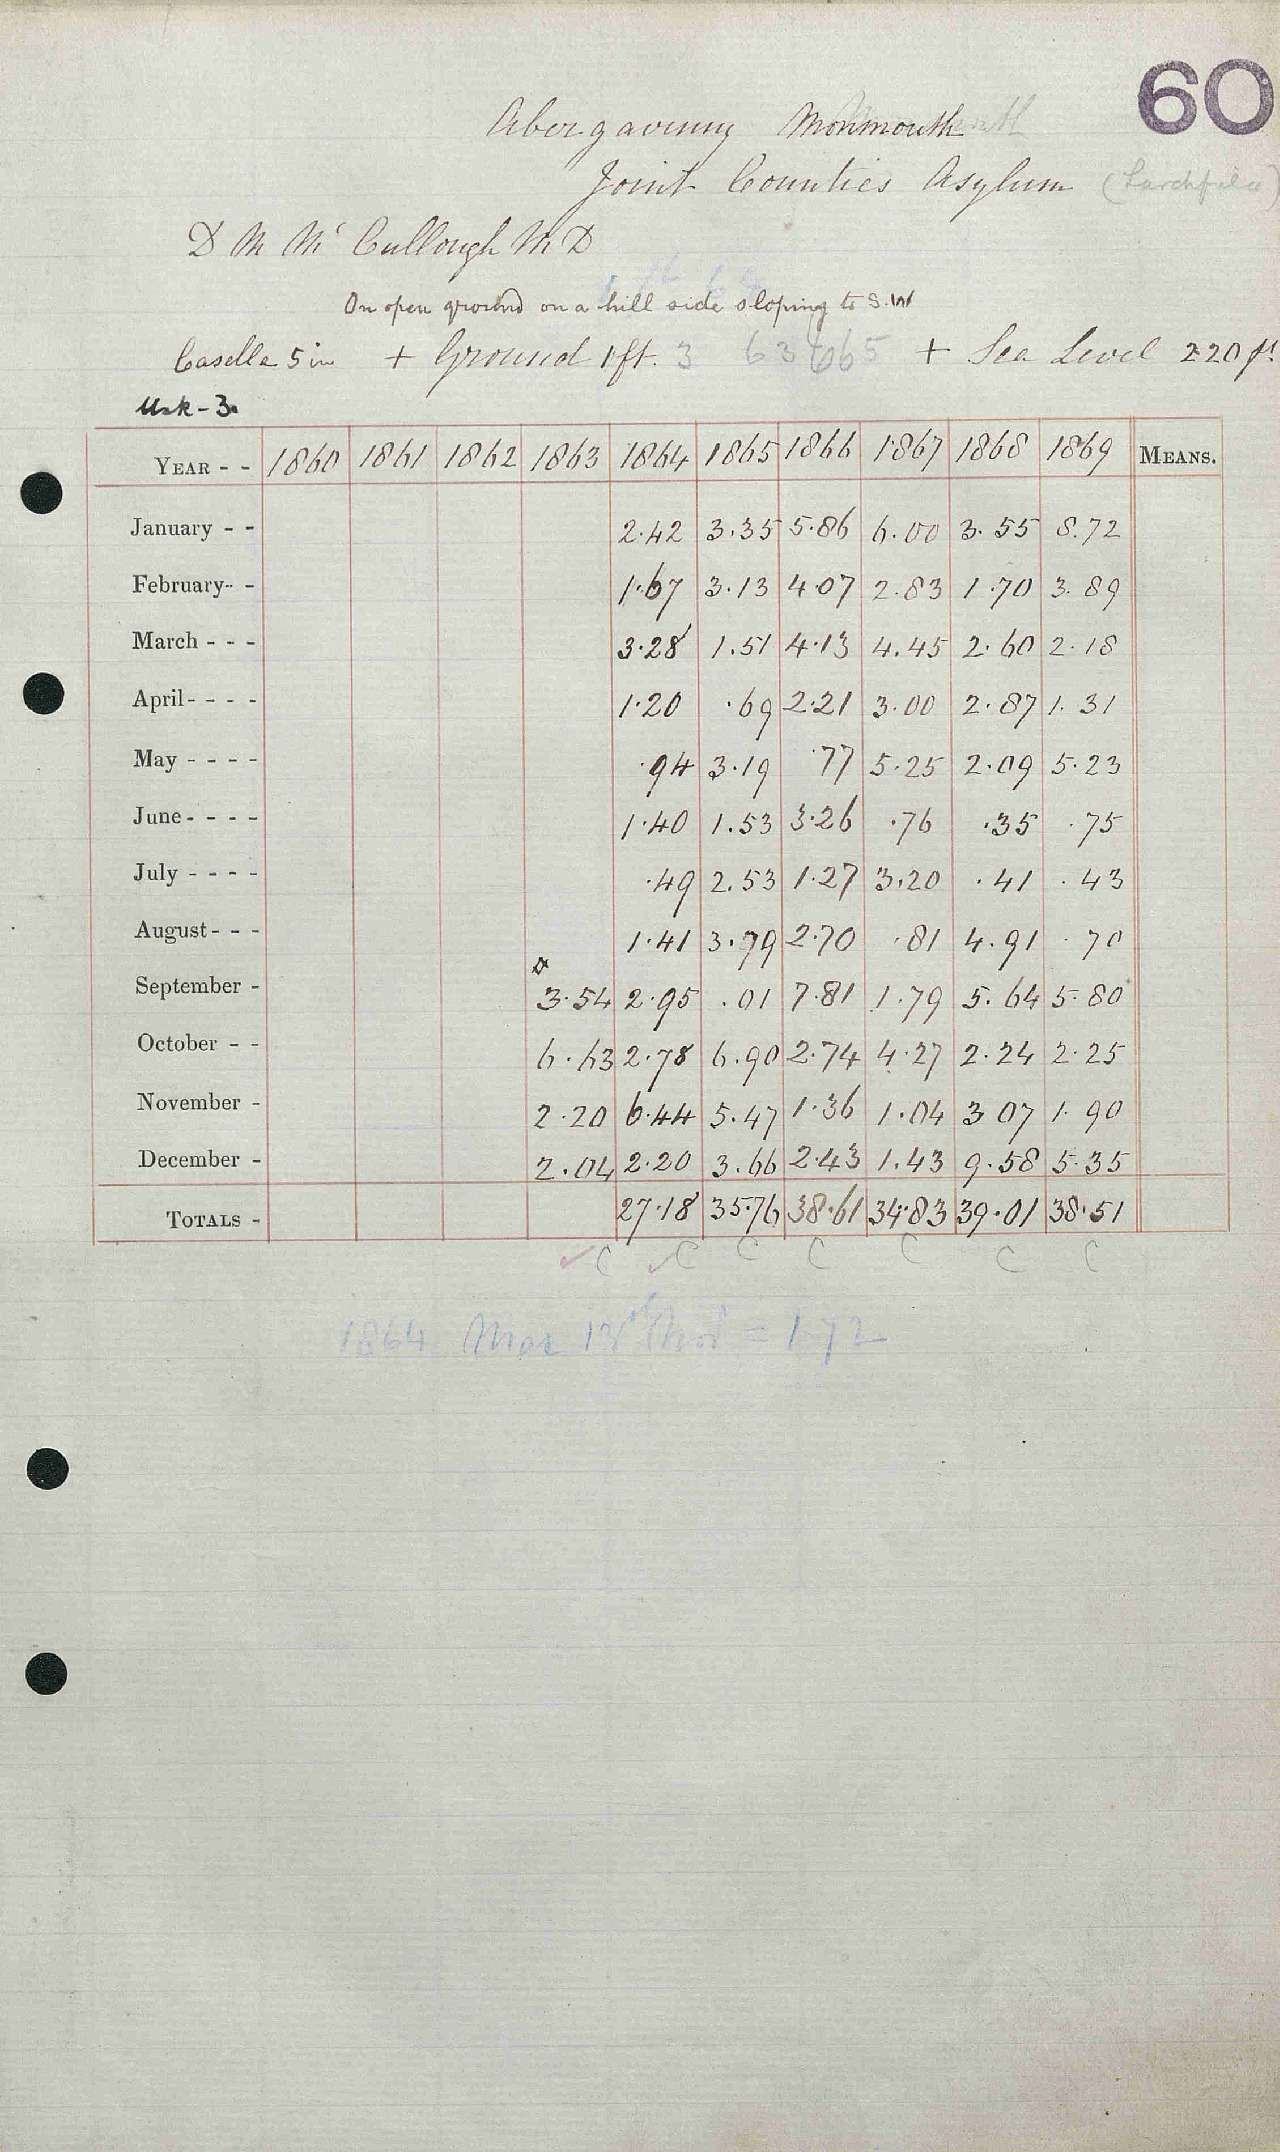 60
Abergavenny Monmouth
Joint Counties Asylum
D M Mc Cullough M D
On open ground on a hill side sloping to S.W
Casella 5 in + Ground 1 ft. 3 + Sea Level 220 ft
Usk - 3.
YEAR - - 1860 1861 1862 1863 1864 1865 1866 1867 1868 1869 MEANS.
January - - 2.42 3.35 5.86 6.00 3.55 8.72
February - - 1.67 3.13 4.07 2.83 1.70 3.89
March - - - 3.28 1.51 4.13 4.45 2.60 2.18
April - - - - 1.20 .69 2.21 3.00 2.87 1.31
May - - - - .94 3.19 .77 5.25 2.09 5.23
June - - - - 1.40 1.53 3.26 .76 .35 .75
July - - - - .49 2.53 1.27 3.20 .41 .43
August - - - 1.41 3.79 2.70 .81 4.91 .70
September - 3.54 2.95 .01 7.81 1.79 5.64 5.80
October - - 6.63 2.78 6.90 2.74 4.27 2.24 2.25
November - 2.20 6.44 5.47 1.36 1.04 3 07 1.90
December - 2.04 2.20 3.66 2.43 1.43 9.58 5.35
TOTALS - 27.18 35.76 38.61 34.83 39.01 38.51
C C C C C C C
1864 Mar 13th = 1.72